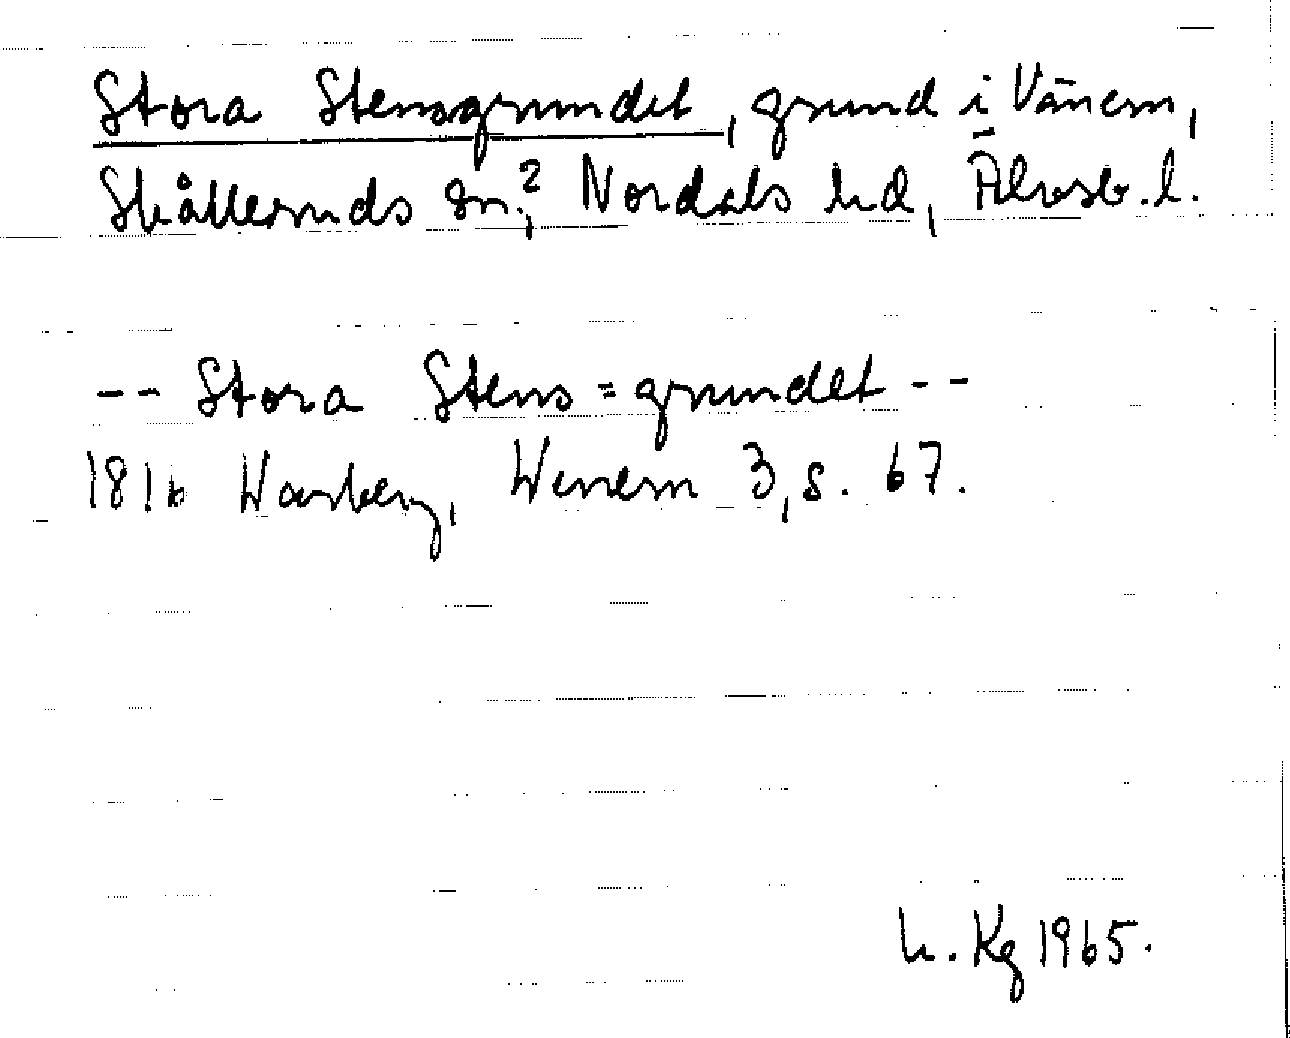 Stora Stensgrundet, grund i Vänern,
Skålleruds sn?, Nordals hd, Älvsb. l.
-- Stora Stens=grundet --
1816 Warberg, Wenern 3, s. 67.
h. Kg 1965.